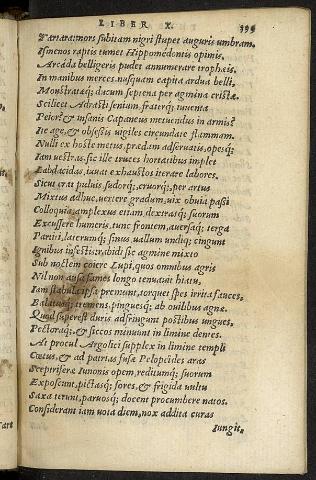 LIBER X. 199
Tartara: mors subitam nigri stupet auguris umbram.
Ismenos raptis tumet Hippomedontis opimis.
Arcada belligeris pudet annumerare trophæis.
In manibus merces. nusquam capita ardua belli,
Monstratasq; ducum septena per agmina cristæ.
Scilicet Adrasti senium, fraterq; iuuenta
Peior, & insanis Capaneus metuendus in armis?
Ite age, & obsessis uigiles circundate flammam.
Nulli ex hoste metus, prædam adseruatis, opesq;
Iam uestras. sic ille truces hortatibus implet
Labdacidas, iuuat exhaustos iterare labores.
Sicut erat puluis, sudorq;, cruorq;, per artus
Mixtus adhuc, uertere gradum, uix obuia passi
Colloquia. amplexus etiam, dextrasq; suorum
Excussere humeris, tunc frontem, auersaq; terga
Partiti, laterumq; sinus, uallum undiq; cingunt
Ignibus infestis. rabidi sic agmine mixto
Sub noctem coiere Lupi, quos omnibus agris
Nil non ausa fames longo tenuauit hiatu,
Iam stabula ipsa premunt, torquet spes irrita fauces,
Balatusq; tremens, pinguesq; ab ouilibus agnæ.
Quod superest duris adfringunt postibus ungues,
Pectoraq;, & siccos minuunt in limine dentes.
At procul Argolici supplex in limine templi
Cœtus, & ad patrias fusæ Pelopeides aras
Sceptriferæ Iunonis opem, reditumq; suorum
Exposcunt, pictasq; fores, & frigida uultu
Saxa terunt, paruosq; docent procumbere natos.
Considerant iam uota diem, nox addita curas
Iungit,